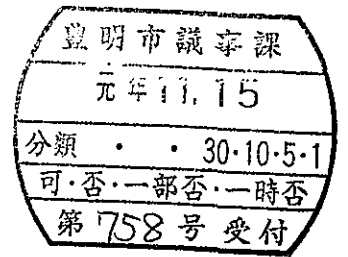 豊明市議事課
元年11.15
分類 ・ ・ 30・10・5・1
可・否・一部否・一時否
第758号受付